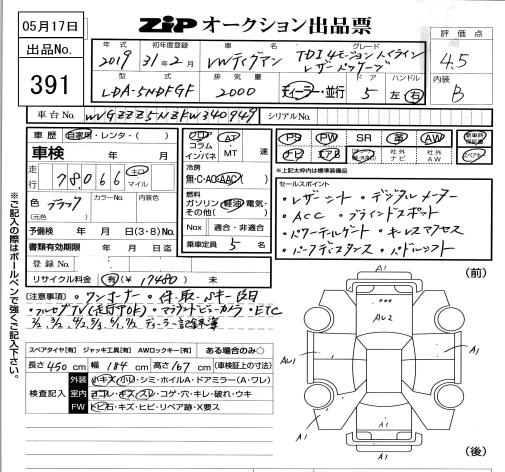 05月17日
ZIP オークション出品票
出品No.
391
年式 初年度登録 車名 グレード
2019 31年2月 VWティグアン TDI 4モーション ハイライン
レザーパッケージ
型式 排気量 ドア ハンドル
LDA-5NDFGF 2000 ディーラー・並行 5 左・右
評価点
4.5
内装
B
車台No. WVGZZZ5NZFW340949 シリアルNo.
車歴 自家用・レンタ・( )
車検 年 月
走行 78066 キロ マイル
色 ブラック カラーNo. 内装色
(元色)
予備検 年 月 日(3・8)No.
書類有効期限 年 月 日迄
登録No.
リサイクル料金 有(¥ 17480) 未
フロア コラム インパネ AT・MT 速
冷房
無・C・AC・AAC
燃料
ガソリン・軽油・電気・その他( )
Nox 適合・非適合
乗車定員 5 名
PS PW SR 革 AW
ナビ エアB 社外ナビ 社外AW
*上記太枠内は標準装備品
セールスポイント
・レザーシート ・デジタルメーター
・ACC ・ブラインドスポット
・パワーテールゲート ・キーレスアクセス
・パークディスタンス ・パドルシフト
注意事項 ・ワンオーナー ・保・取・スキー後日
・フルセグTV(走行中OK) ・アラウンドビューカメラ ・ETC
ディーラー記録簿
スペアタイヤ[有] ジャッキ工具[有] AWロックキー[有] ある場合のみ○
長さ 450 cm 幅 184 cm 高さ 167 cm (車検証上の寸法)
検査記入
外装 小キズ・小凹・シミ・ホイルA・ドアミラー(A・ワレ)
室内 ヨゴレ・キズ・スレ・コゲ・穴・キレ・破れ・ウキ
FW トビ石・キズ・ヒビ・リペア跡・X要ス
※ご記入の際はボールペンで強くご記入下さい。
(前)
A1
AU2
AU1
A1
A1
A1
(後)